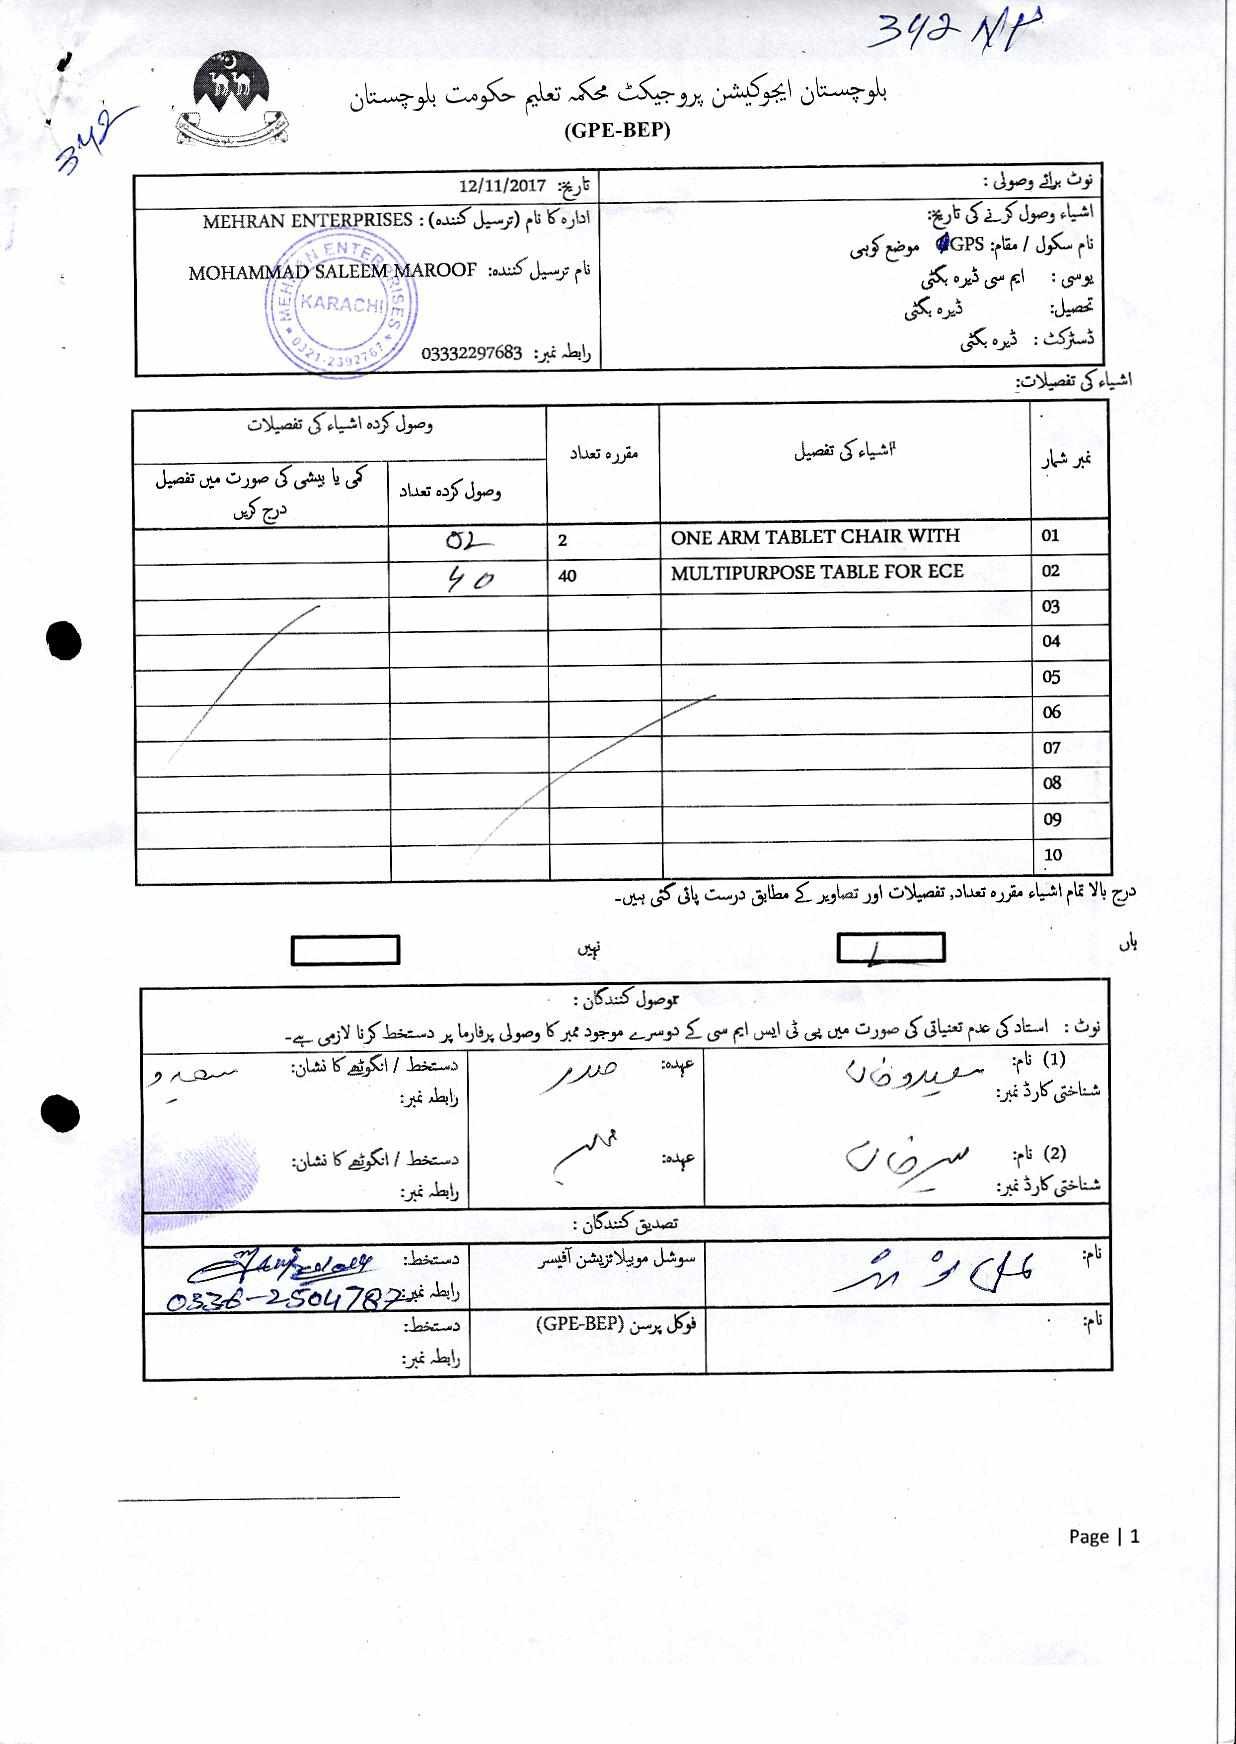 342 NP
342
بلوچستان ایجوکیشن پروجیکٹ محکمہ تعلیم حکومت بلوچستان
(GPE-BEP)
نوٹ برائے وصولی :
تاریخ: 12/11/2017
اشیاء وصول کرنے کی تاریخ:
نام سکول / مقام: GPS موضع کوبی
یو سی : ایم سی ڈیرہ بگٹی
تحصیل: ڈیرہ بگٹی
ڈسٹرکٹ : ڈیرہ بگٹی
ادارہ کا نام (ترسیل کنندہ) : MEHRAN ENTERPRISES
نام ترسیل کنندہ: MOHAMMAD SALEEM MAROOF
رابطہ نمبر: 03332297683
MEHRAN ENTERPRISES
KARACHI
0321-2392767
اشیاء کی تفصیلات:
نمبر شمار
اشیاء کی تفصیل
مقررہ تعداد
وصول کردہ اشیاء کی تفصیلات
وصول کردہ تعداد
کمی یا بیشی کی صورت میں تفصیل
درج کریں
01 ONE ARM TABLET CHAIR WITH 2 02
02 MULTIPURPOSE TABLE FOR ECE 40 40
03
04
05
06
07
08
09
10
درج بالا تمام اشیاء مقررہ تعداد, تفصیلات اور تصاویر کے مطابق درست پائی گئی ہیں۔
ہاں
نہیں
وصول کنندگان :
نوٹ : استاد کی عدم تعنیاتی کی صورت میں پی ٹی ایس ایم سی کے دوسرے موجود ممبر کا وصولی پرفارما پر دستخط کرنا لازمی ہے۔
(1) نام: سعیدو خان عہدہ: صدر دستخط / انگوٹھے کا نشان: سعیدو
شناختی کارڈ نمبر: رابطہ نمبر:
(2) نام: عہدہ: دستخط / انگوٹھے کا نشان:
شناختی کارڈ نمبر: رابطہ نمبر:
تصدیق کنندگان :
نام: سوشل موبیلائزیشن آفیسر دستخط:
رابطہ نمبر: 0336-2504787
نام: فوکل پرسن (GPE-BEP) دستخط:
رابطہ نمبر:
Page | 1